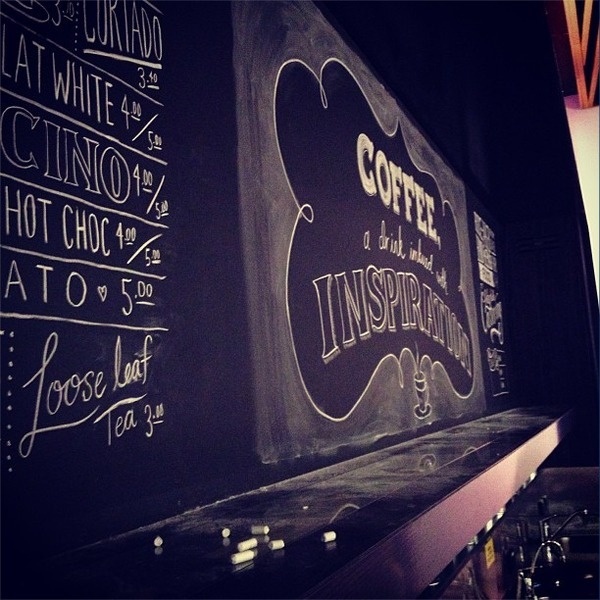 CORTADO
3.40
LAT WHITE 4.00/5.00
CINO 4.00/5.00
HOT CHOC 4.00/5.00
ATO ♡ 5.00
Loose leaf
Tea 3.00
COFFEE,
a drink infused with
INSPIRATION